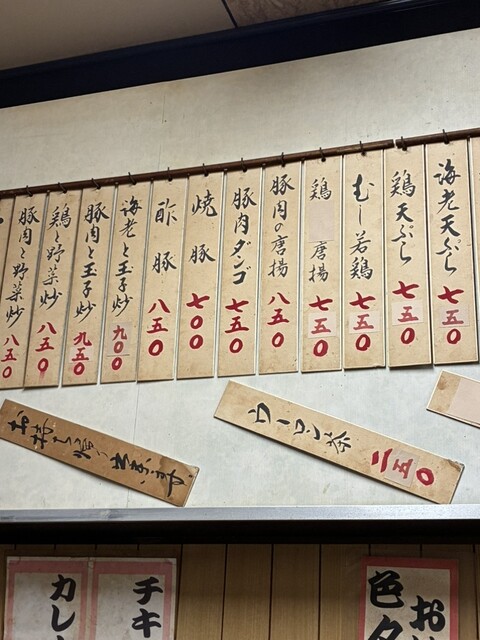 海老天ぷら 七五〇
鶏天ぷら 七五〇
むし若鶏 七五〇
鶏 唐揚 七五〇
豚肉の唐揚 八五〇
豚肉ダンゴ 七五〇
焼豚 七〇〇
酢豚 八五〇
海老と玉子炒 九〇〇
豚肉と玉子炒 九五〇
鶏と野菜炒 八五〇
豚肉と野菜炒 八五〇
ウーロン茶 二五〇
お持ち帰り出来ます
色
お
チキ
カレー